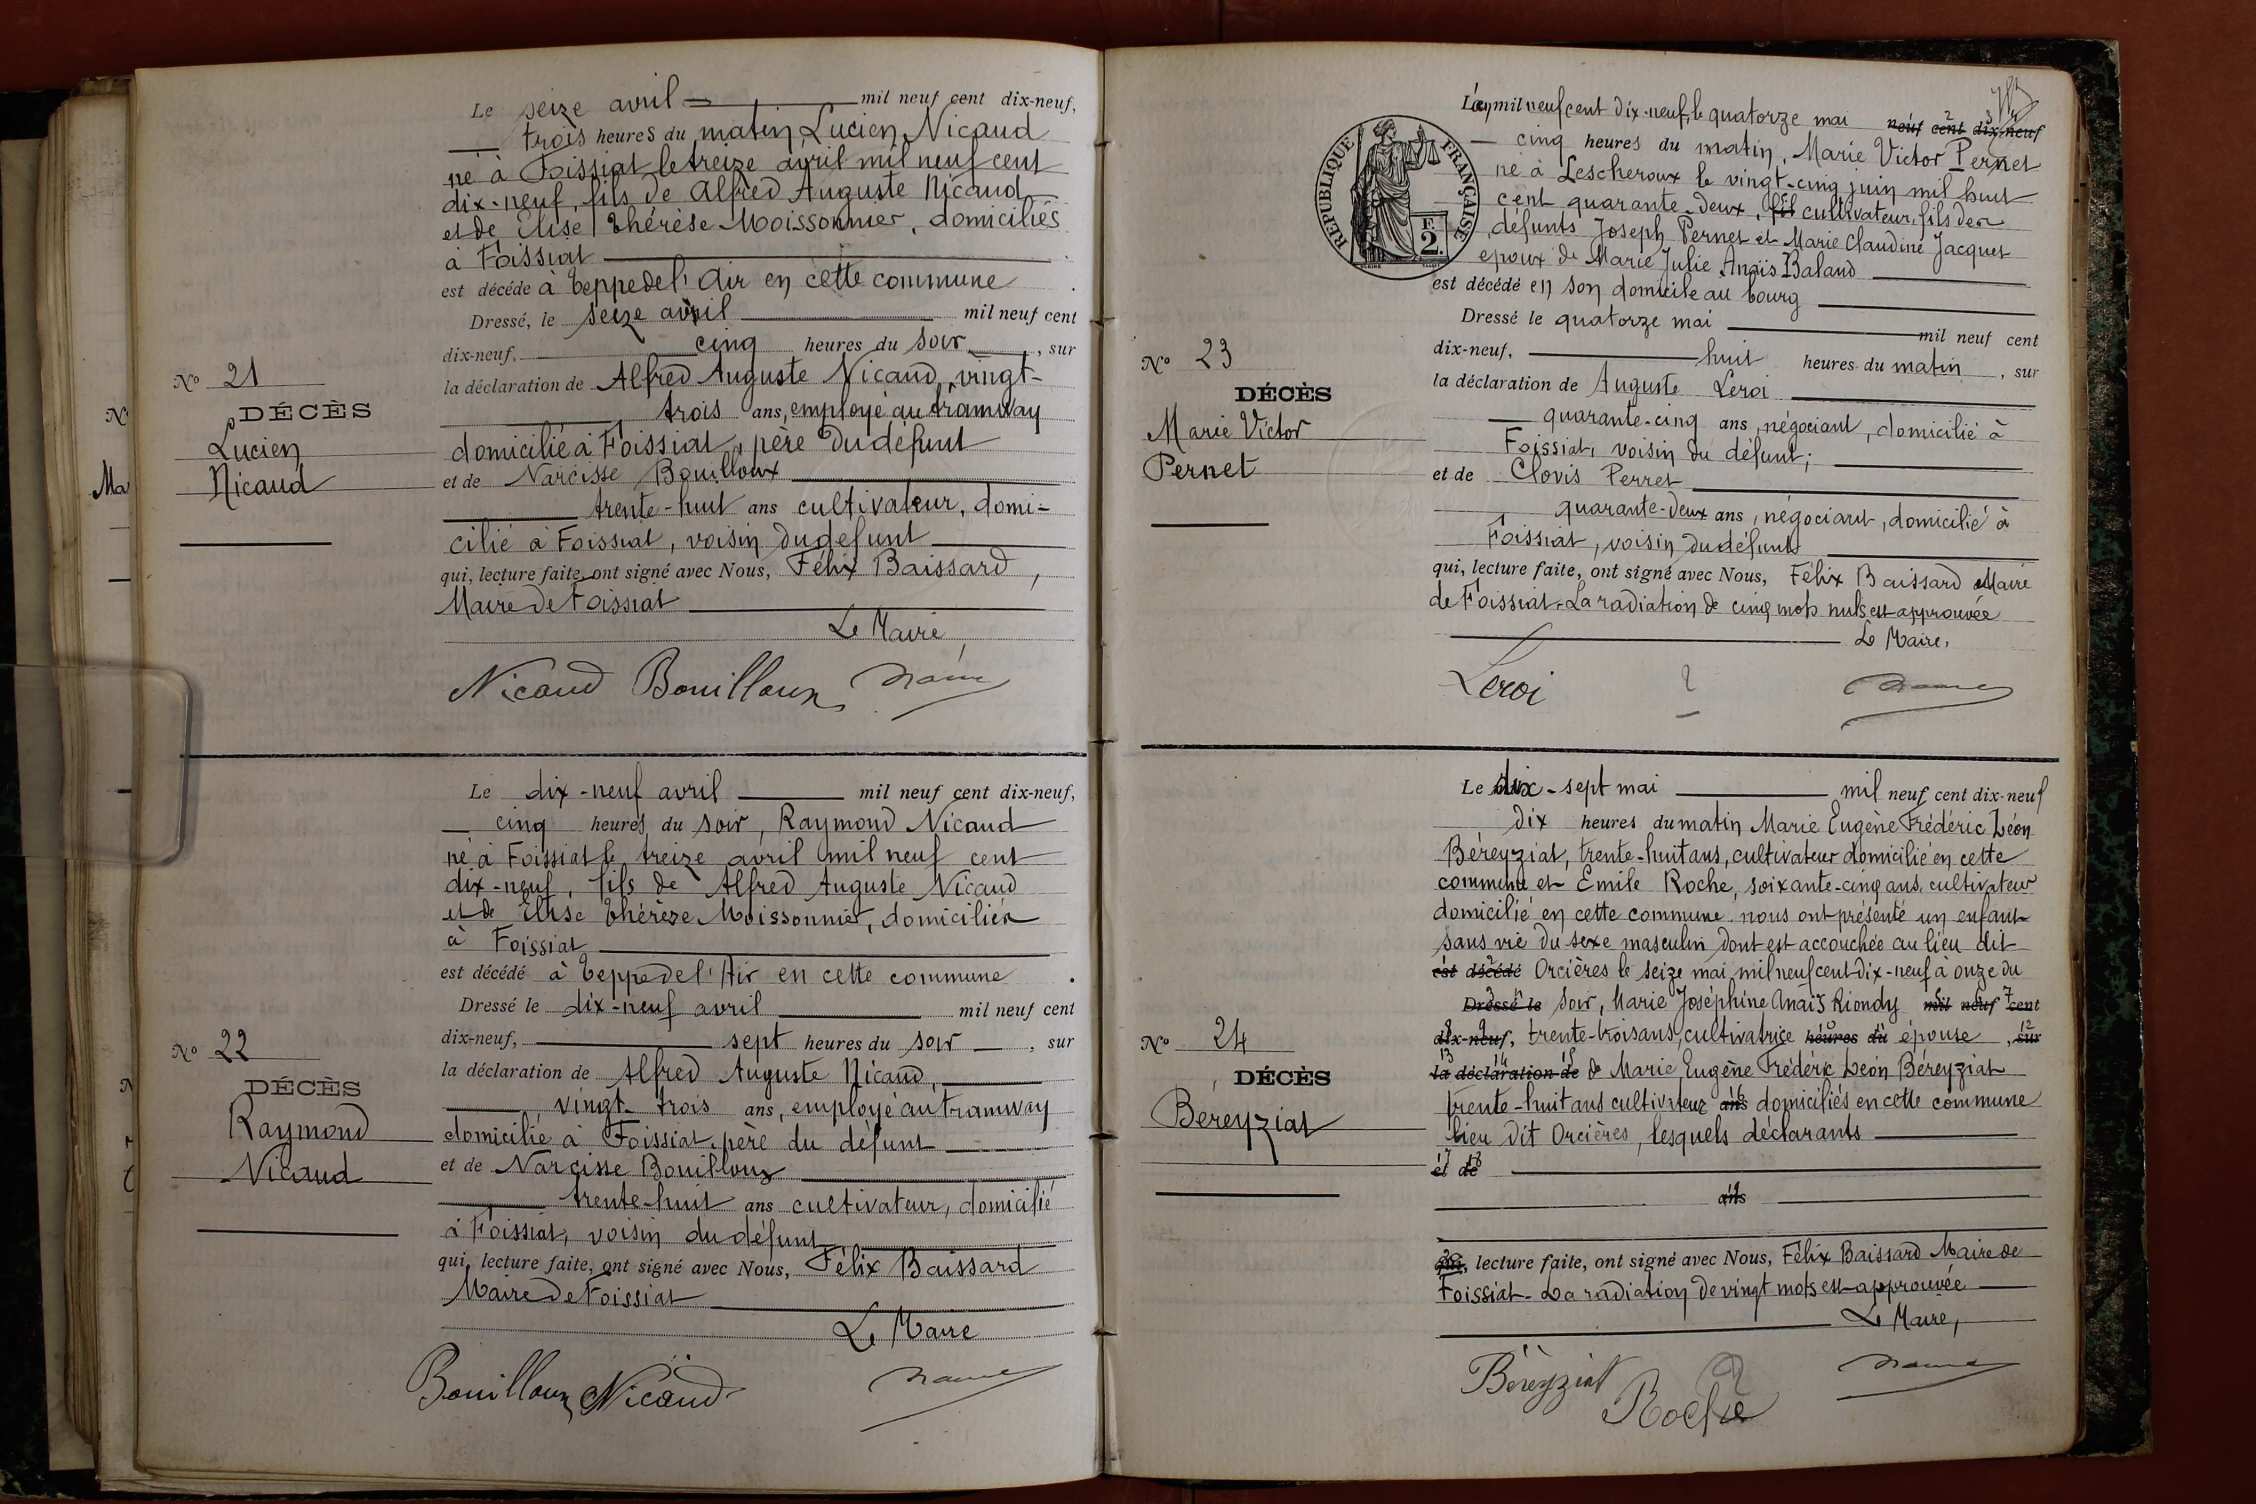 Le seize avril mil neuf cent dix-neuf,
trois heures du matin, Lucien Nicaud
né à Foissiat le treize avril mil neuf cent
dix-neuf, fils de Alfred Auguste Nicaud
et de Elise Thérèse Moissonnier, domiciliés
à Foissiat
est décédé à Teppe de l'Air en cette commune
Dressé, le seize avril mil neuf cent
dix-neuf, cinq heures du soir, sur
la déclaration de Alfred Auguste Nicaud, vingt-
trois ans, employé au tramway
domicilié à Foissiat, père du défunt
et de Narcisse Bouilloux
trente-huit ans cultivateur, domi-
cilié à Foissiat, voisin du défunt
qui, lecture faite, ont signé avec Nous, Félix Baissard,
Maire de Foissiat
Le Maire,
Nicaud Bouilloux
No 21
DÉCÈS
Lucien
Nicaud
Le dix-neuf avril mil neuf cent dix-neuf,
cinq heures du soir, Raymond Nicaud
né à Foissiat le treize avril mil neuf cent
dix-neuf, fils de Alfred Auguste Nicaud
et de Elise Thérèze Moissonnier, domiciliés
à Foissiat
est décédé à Teppe de l'Air en cette commune
Dressé le dix-neuf avril mil neuf cent
dix-neuf, sept heures du soir, sur
la déclaration de Alfred Auguste Nicaud,
vingt-trois ans, employé au tramway
domicilié à Foissiat, père du défunt
et de Narcisse Bouilloux
trente-huit ans cultivateur, domicilié
à Foissiat, voisin du défunt
qui, lecture faite, ont signé avec Nous, Félix Baissard
Maire de Foissiat
Le Maire
Bouilloux Nicaud
No 22
DÉCÈS
Raymond
Nicaud
L'an mil neuf cent dix-neuf, le quatorze mai neuf cent dix-neuf
cinq heures du matin, Marie Victor Pernet
né à Lescheroux le vingt-cinq juin mil huit
cent quarante-deux, fil cultivateur, fils des
défunts Joseph Pernet et Marie Claudine Jacquet
époux de Marie Julie Anaïs Baland
est décédé en son domicile au bourg
Dressé le quatorze mai mil neuf cent
dix-neuf, huit heures du matin, sur
la déclaration de Auguste Leroi
quarante-cinq ans, négociant, domicilié à
Foissiat, voisin du défunt;
et de Clovis Perret
quarante-deux ans, négociant, domicilié à
Foissiat, voisin du défunt
qui, lecture faite, ont signé avec Nous, Félix Baissard Maire
de Foissiat. La radiation de cinq mots nuls est approuvée
Le Maire,
Leroi
RÉPUBLIQUE FRANÇAISE
F.
2
No 23
DÉCÈS
Marie Victor
Pernet
Le dix-sept mai mil neuf cent dix-neuf
dix heures du matin Marie Eugène Frédéric Léon
Béreyziat, trente-huit ans, cultivateur domicilié en cette
commune et Emile Roche, soixante-cinq ans, cultivateur
domicilié en cette commune nous ont présenté un enfant
sans vie du sexe masculin dont est accouchée au lieu dit
est décédé Orcières le seize mai mil neuf cent dix-neuf à onze du
Dressé le soir, Marie Joséphine Anaïs Riondy mil neuf cent
dix-neuf, trente-trois ans, cultivatrice heures du épouse, sur
la déclaration de de Marie Eugène Frédéric Léon Béreyziat
trente-huit ans cultivateur ans domiciliés en cette commune
lieu dit Orcières, lesquels déclarants
et de
ans
qui, lecture faite, ont signé avec Nous, Félix Baissard Maire de
Foissiat. La radiation de vingt mots est approuvée
Le Maire,
Béreyziat
Roche
No 24
DÉCÈS
Béreyziat